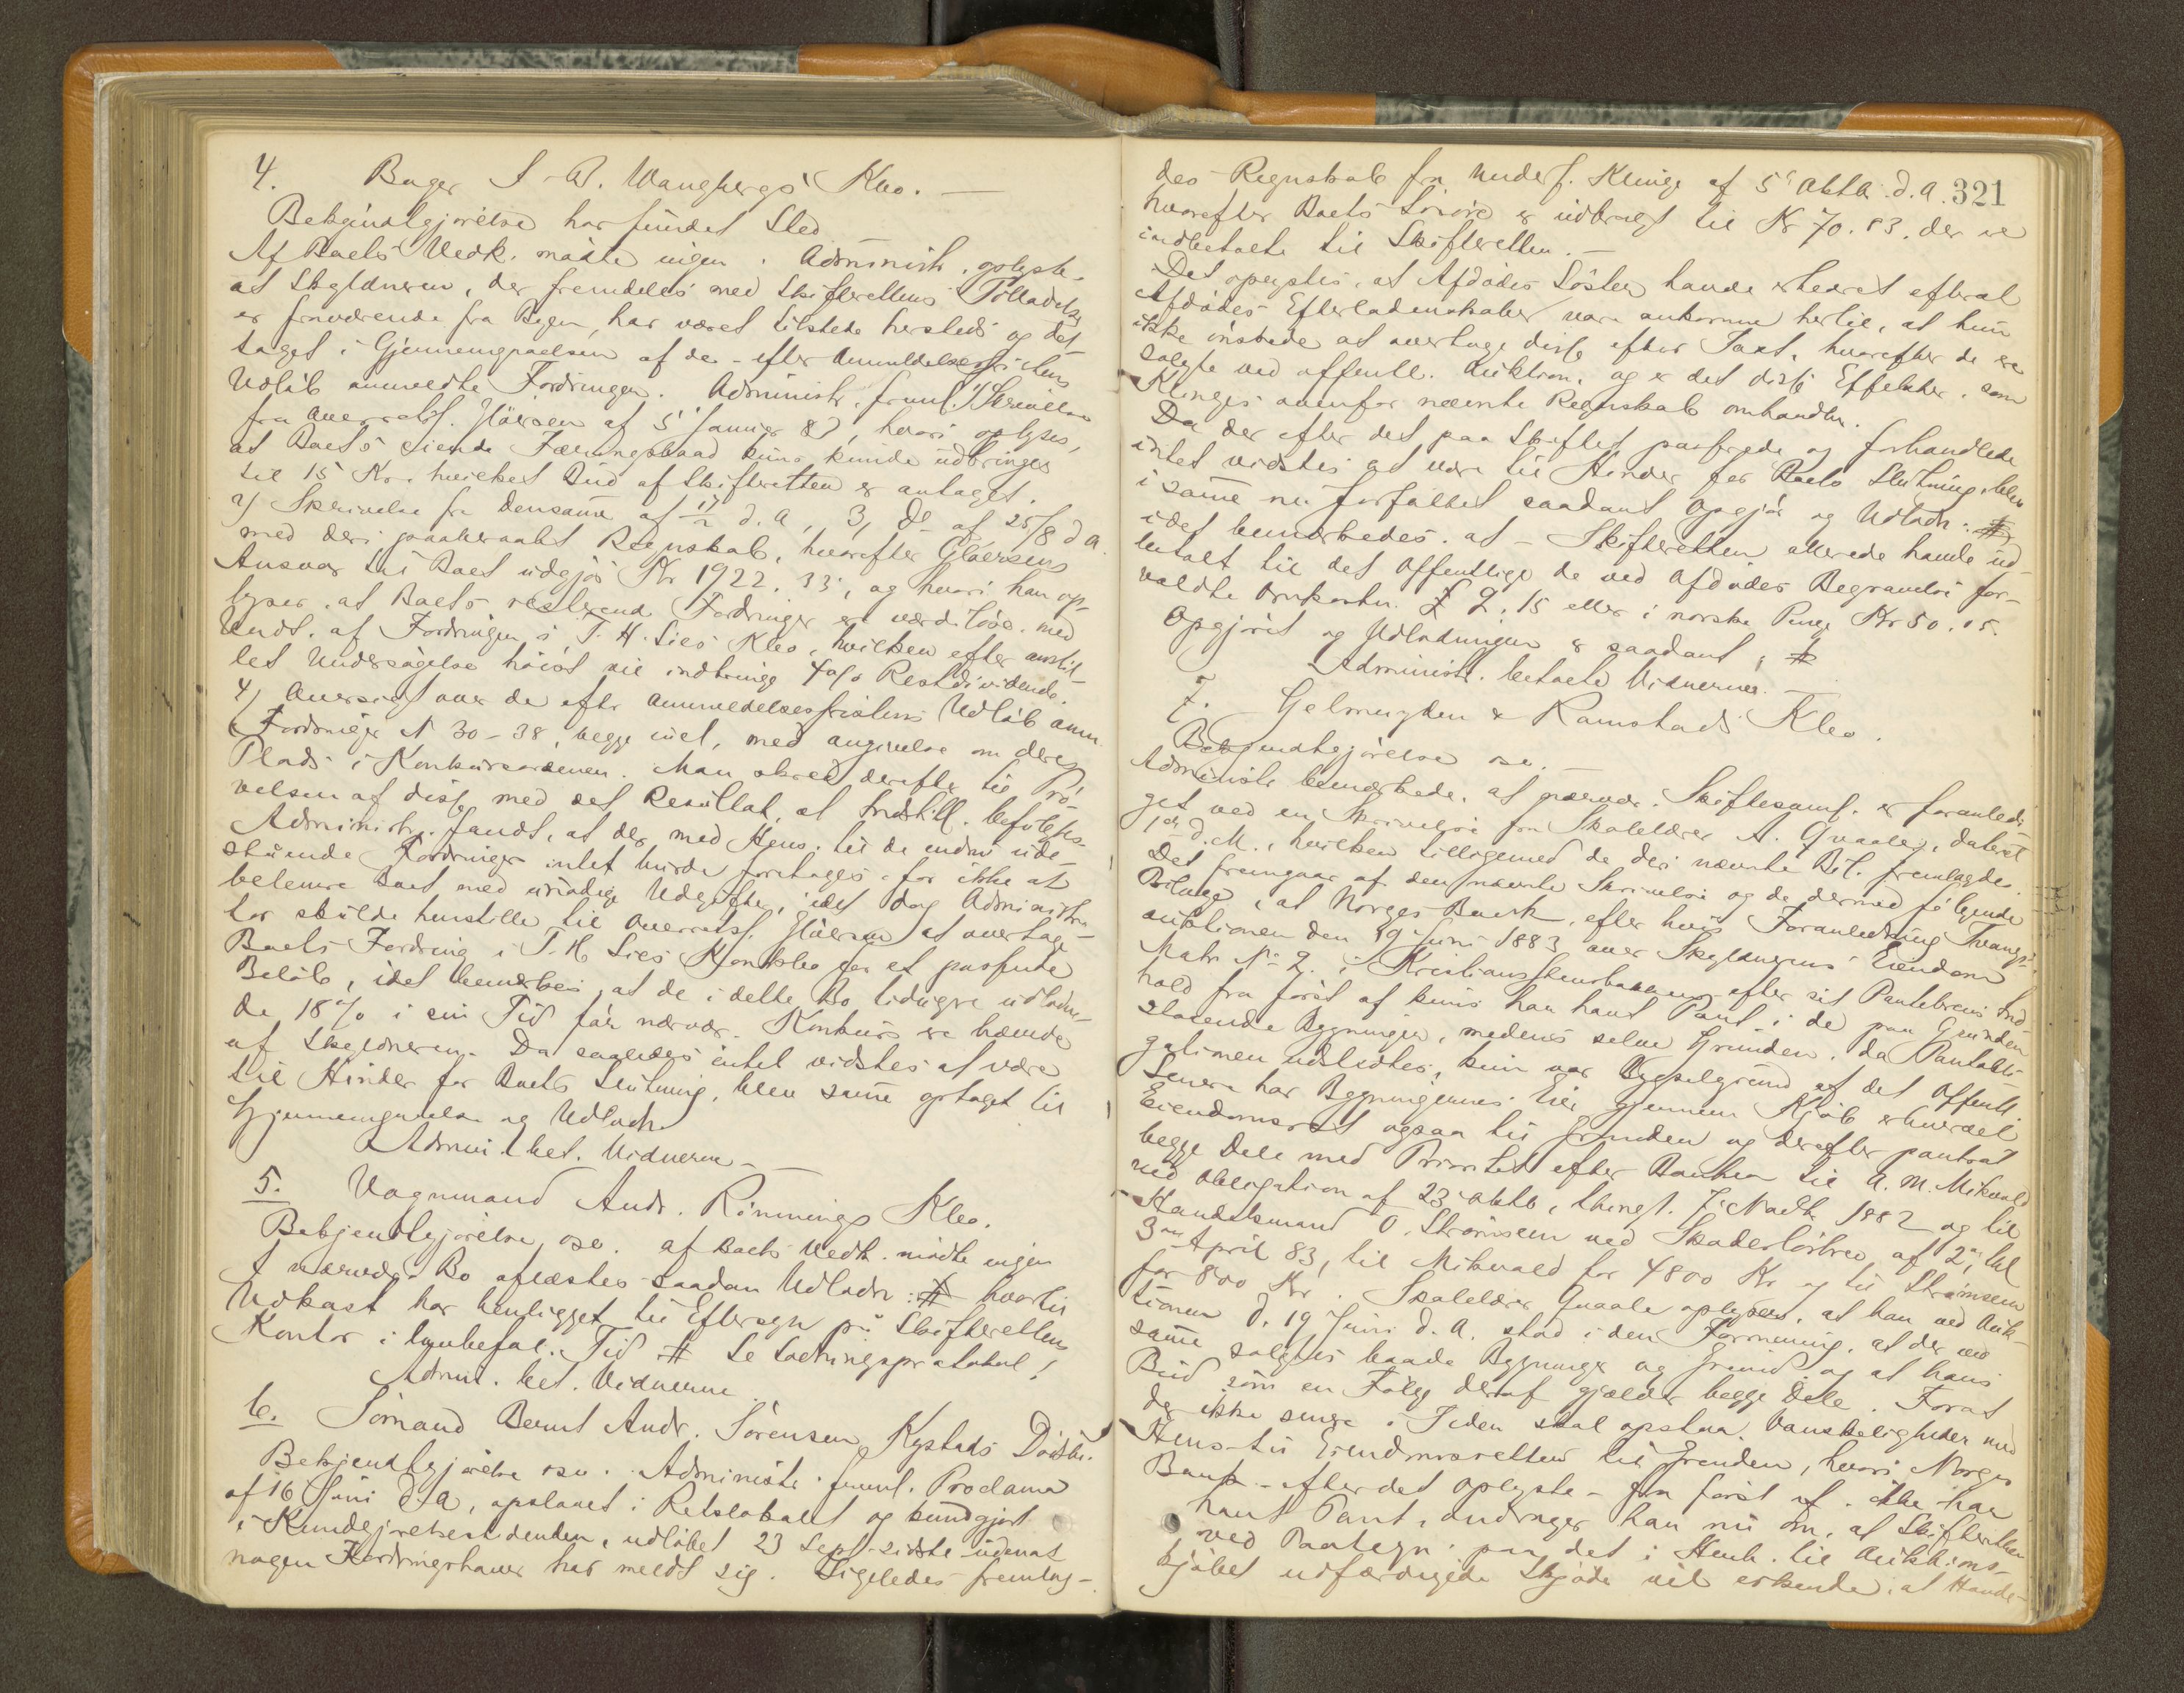 4. Bager S. A. Wangbergs Kbo. —
Bekjendtgjørelse har fundet Sted
Af Boets Vedk. mødte ingen. Administr. oplyste
at Skyldneren, der fremdeles med Skifterettens Tilladelse
er fraværende fra Byen, har været tilstede hersteds og del-
taget i Gjennemgaaelsen af de efter Anmeldelsesfristens
Udløb anmeldte Fordringer. Administr. freml. 1) Skrivelse
fra Overretss. Gløersen af 5 Januar 83, hvori oplyses,
at Boets eiende Færingsbaad kun kunde udbringes
til 15 Kr. hvilket Bud af Skifteretten er antaget.
2) Skrivelse fra densamme af d. A., 3) Do af 25/8 d A.
med deri paaberaabt Regnskab, hvorefter Gløersens
Ansvar til Boet udgjør Kr 1922.33, og hvori han op-
lyser, at Boets resterende Fordringer er værdiløse med
Undt. af Fordringen i T. H. Lies Kbo, hvilken efter anstil-
let Undersøgelse høist vil indbringe 4 % Restdividende.
4) Oversigt over de efter Anmeldelsesfristens Udløb anm.
Fordringer N 30-38, begge incl., med angivelse om deres
Plads i Konkursordenen. Man skred derefter til Prø-
velsen af disse med det Resultat, at Indstill. befulgtes
Administr. fandt, at der med Hens. til de endnu ude-
staaende Fordringer intet burde foretages for ikke at
belemre Boet med unødige Udgifter, idet dog Administra-
tor skulde henstille til Overretss. Gløersen at overtage
Boets Fordring i T. H. Lies Konkbo for et passende
Beløb, idet bemærkes, at de i dette Bo tidligere udlod-
de 18 % i sin Tid før nærvær. Konkurs ere hævede
af Skyldneren. Da saaledes intet vidstes at være
til Hinder for Boets Slutning, blev samme optaget til
Gjennemgaaelse og Udlodn.
Admini. bet. Vidnerne. —
5. Vognmand Andr. Rønnings Kbo.
Bekjendtgjørelse osv. af Boets Vedk. mødte ingen
I nærværd. Bo aflæstes saadan Udlodn: # hvortil
Udkast har henligget til Eftersyn på Skifterettens
Kontor i lovbefal. Tid # Se Lodningsprotokol!
Admin. bet. Vidnerne
6. Sømand Bernt Andr. Sørensen Rystads Dødsbo.
Bekjendtgjørelse osv. Administr. freml. Proclama
af 16 Juni d. A., opslaaet i Retslokalet og kundgjort
i Kundgjørelsestidenden, udløbet 23 Sept. sidste uden at
nogen Fordringshaver har meldt sig. Ligeledes fremlag-
des Regnskab fra Underf. Klinge af 5 Oktb. d. A. 321
hvorefter Boets Løsøre er udbragt til Kr 70.83. der er
indbetalte til Skifteretten. —
Det oplystes, at Afdødes Søster havde erklæret efterat
Afdødes Efterladenskaber vare ankomne hertil, at hun
ikke ønskede at overtage disse efter Taxt, hvorefter de ere
solgte ved offentl. Auktion, og er det disse Effekter, som
Klinges ovenfor nævnte Regnskab omhandler.
Da der efter det paa Skiftet passerede og forhandlede
intet vidstes at være til Hinder for Boets Slutning, blev
i samme nu forfattet saadant Opgjør og Udlodn: #
idet bemærkedes at Skifteretten allerede havde ud-
betalt til det Offentlige de ved Afdødes Begravelse for-
voldte Omkostn. £ 2.15 eller i norske Penge Kr 50.05.
Opgjøret og Udlodningen er saadant; #
Administr. betalte Vidnerne. —
7. Gelmuyden & Ramstads Kbo.
Bekjendtgjørelse osv. —
Administr bemærkede, at nærvær. Skiftesaml. er foranledi-
get ved en Skrivelse fra Skolelærer A. Qvaale, dateret
1ste d. M., hvilken tilligemed de deri nævnte Bil. fremlagdes.
Det fremgaar af den nævnte Skrivelse og de dermed følgende
Bilage, at Norges Bank, efter hvis Foranledning Tvangs-
auktionen den 19 Juni 1883 over Skyldnerens Eiendom
Matr No 2. i Kristiansstensbakken efter sit Pantebrevs Ind-
hold fra først af kuns har havt Pant i de paa Grunden
staaende Bygninger, medens selve Grunden, da Pantobli-
gationen udstedtes, kun var Bygselgrund af det Offentl.
Senere har Bygningernes Eier gjennem Kjøb erhvervet
Eiendomsret ogsaa til Grunden og derefter pantsat
begge Dele med Prioritet efter Banken til A. M. Mikvold
ved Obligation af 23 Oktb, thingl. 7 Novbr 1882 og til
Handelsmand O. Strømsem ved Skadesløsbrev af 2den, thl
3die April 83, til Mikvold for 4800 Kr og til Strømsem
for 800 Kr. Skolelærer Qvaale oplyser, at han ved Auk-
tionen d. 19 Juni d. A. stod i den Formening, at der ved
samme solgtes baade Bygninger og Grund, og at hans
Bud som en Følge deraf gjælder begge Dele. Forat
der ikke senere i Tiden skal opstaa Vanskeligheder med
Hens. til Eiendomsretten til Grunden, hvori Norges
Bank efter det oplyste fra først af ikke har
havt Pant, andrager han nu om, at Skifteretten
ved Paategn. paa det i Henh. til Auktions-
kjøbet udfærdigede Skjøde vil erkjende, at Hande-